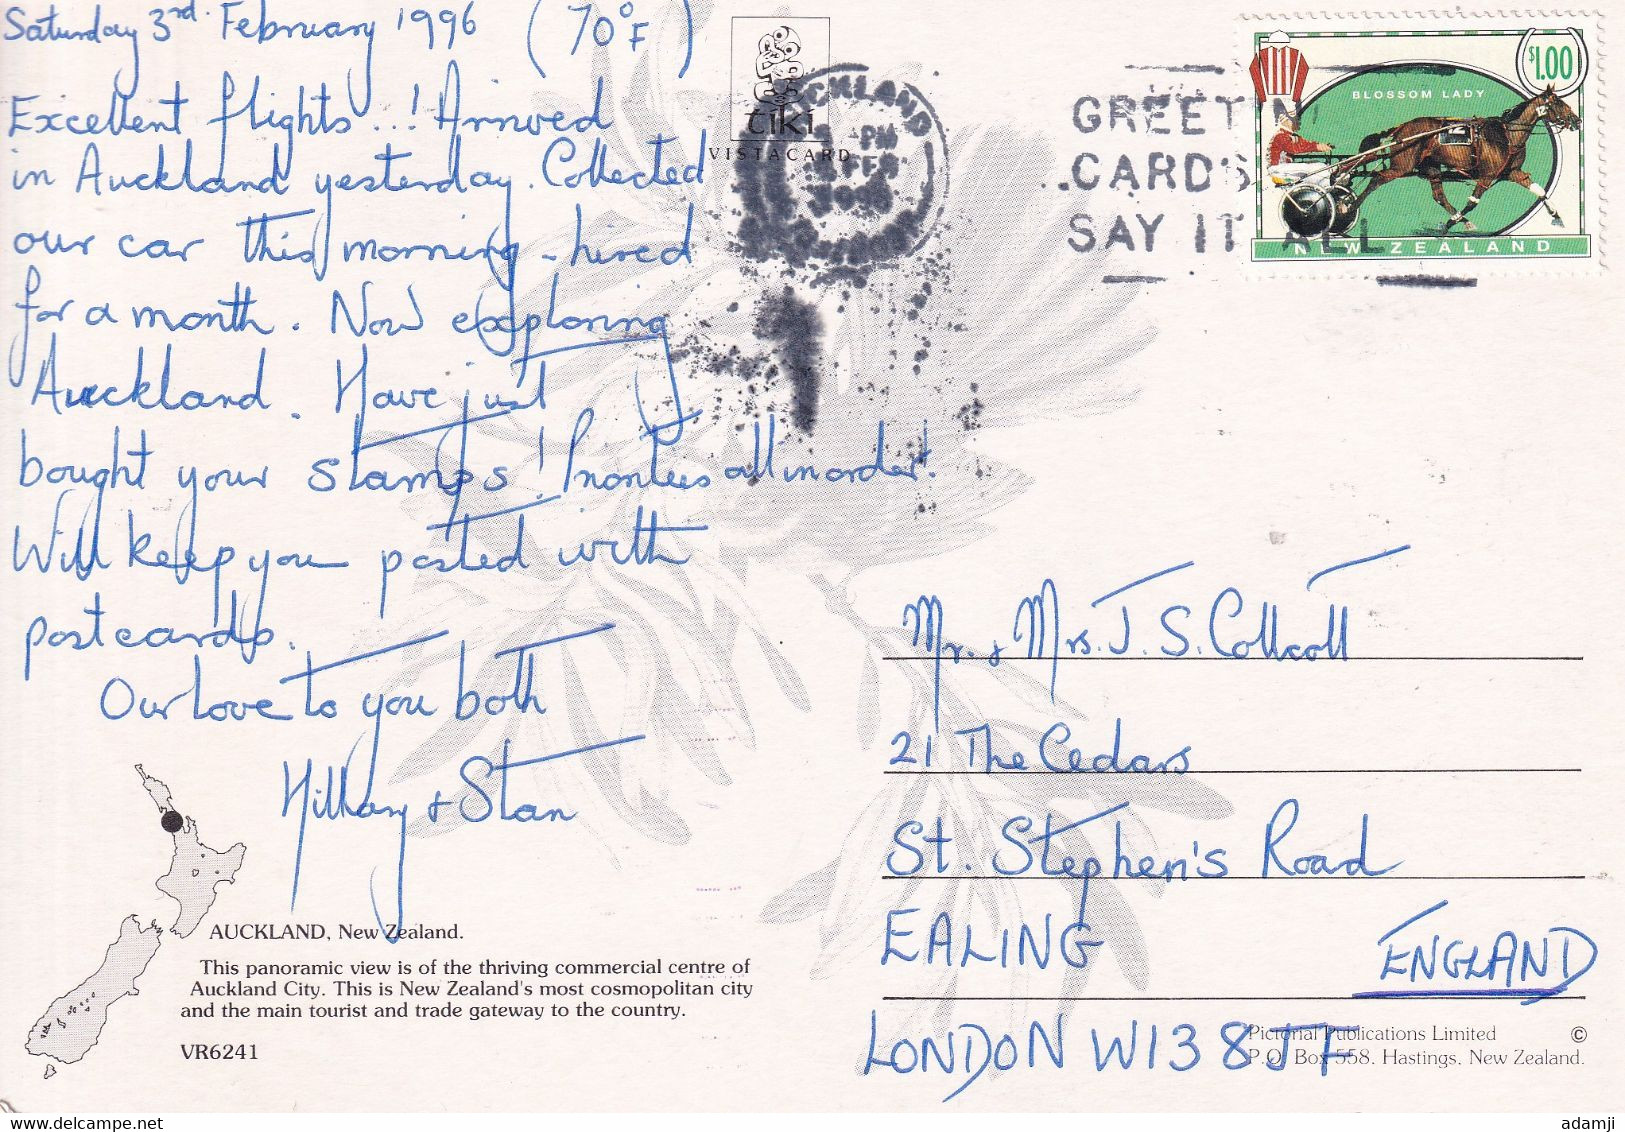 Saturday 3rd. February 1996 (70°F)
Excellent flights...! Arrived
in Auckland yesterday. Collected
our car this morning - hired
for a month. Now exploring
Auckland. Have just
bought your stamps! Priorities all in order!
Will keep you posted with
postcards.
Our love to you both
Hillary & Stan
AUCKLAND, New Zealand.
This panoramic view is of the thriving commercial centre of
Auckland City. This is New Zealand's most cosmopolitan city
and the main tourist and trade gateway to the country.
VR6241
tiki
VISTACARD
AUCKLAND
PM
FEB
1996
GREETIN
CARDS
SAY IT ALL
$1.00
BLOSSOM LADY
NEW ZEALAND
Mr. & Mrs. J. S. Collcott
21 The Cedars
St. Stephen's Road
EALING
ENGLAND
LONDON W13 8JF
Pictorial Publications Limited ©
P.O. Box 558. Hastings. New Zealand.
adamji